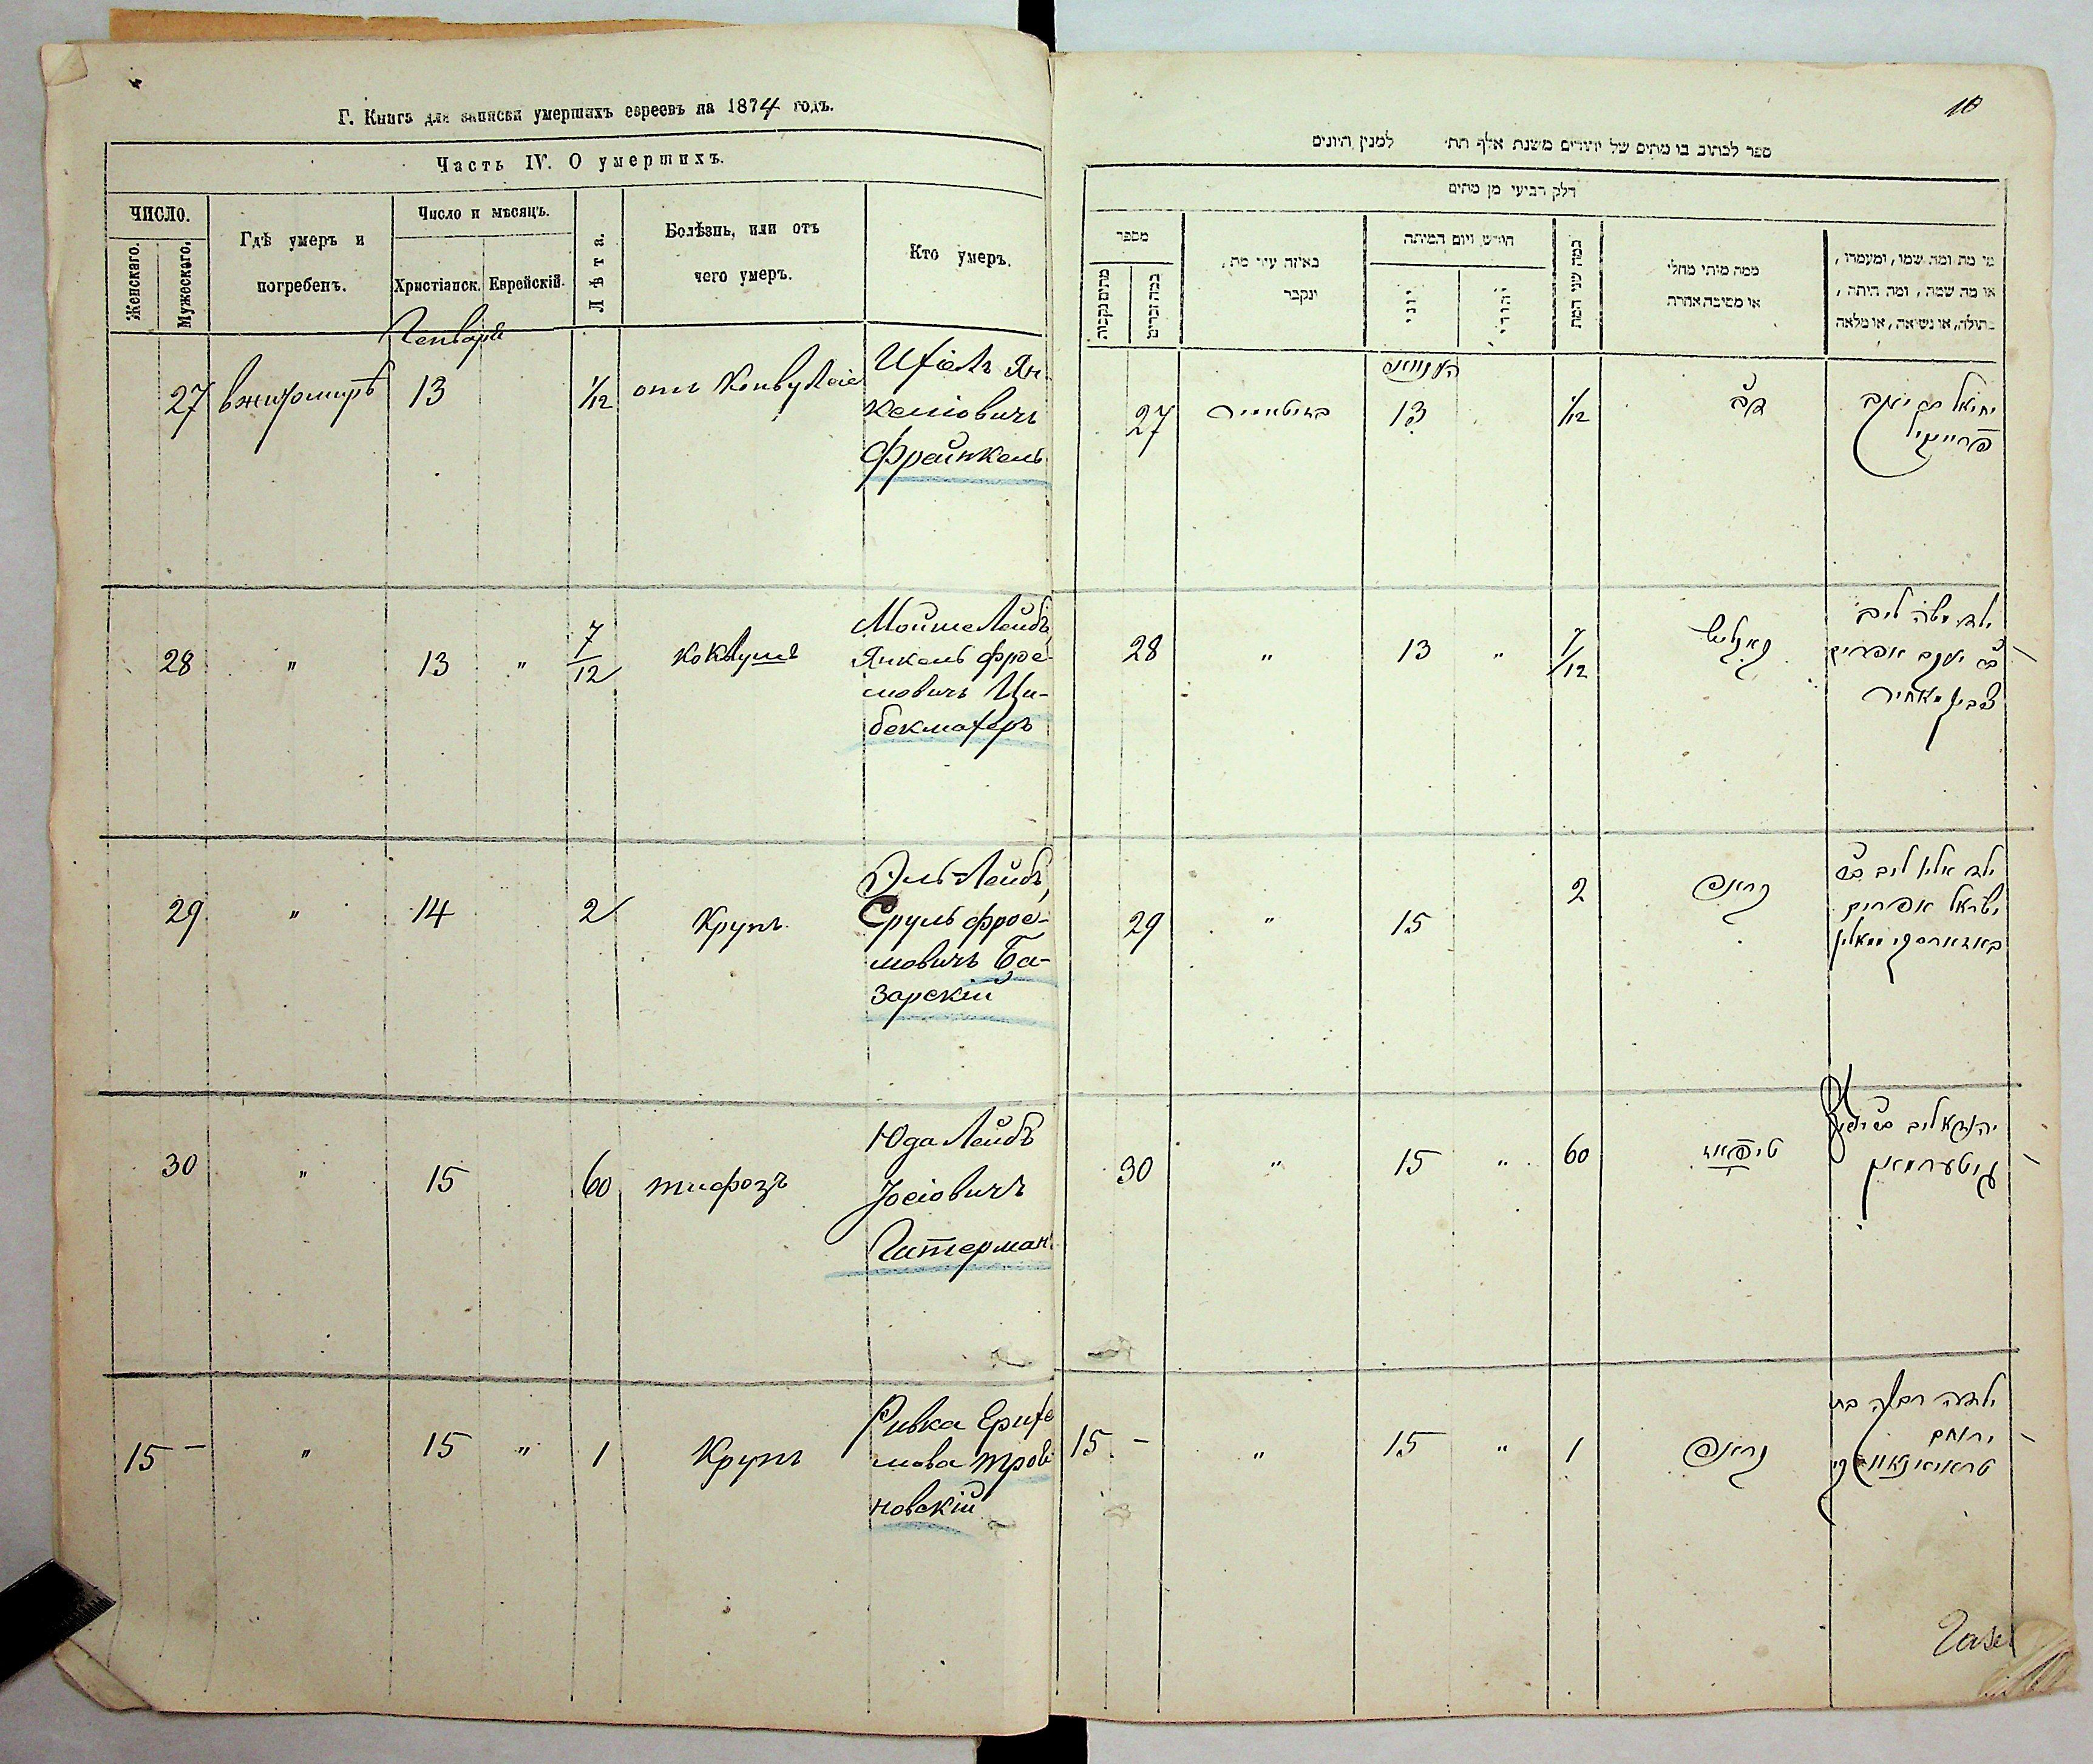 Г. Книга для записки умершихъ евреевъ на 1874 годъ.
Часть IV. О умершихъ.
ЧИСЛО.
Женскаго.
Мужескаго.
Гдѣ умеръ и
погребенъ.
Число и мѣсяцъ.
Христіанск.
Еврейскій.
Лѣта.
Болѣзнь, или отъ
чего умеръ.
Кто умеръ.
Генваря
27 вжитомирѣ 13 1/12 отъ Конвулсіе
Ихіель Ян
келіовичъ
Фраинкель
28 " 13 " 7/12 коклушъ
Мойше Лейбъ,
Янкель фрое-
мовичъ Ци-
бекмахеръ
29 " 14 2 Крупъ
Эль-Лейбъ,
Сруль фрое-
мовичъ Ба-
зарскій
30 " 15 60 тифозъ
Юда Лейбъ
Іосіовичъ
Гитерман
15 – " 15 " 1 Крупъ
Ривка Ерихе
мова Троя
новскій
10
ספר לכתוב בו מתים של יהודים משנת אלף תת' למנין היונים
חלק רביעי מן מתים
מספר
מתים נקבות
כמה זכרים
באיזה עיר מת,
ונקבר
חודש ויום המיתה
יוני
יהודי
כמה שני המת
ממה מיתי מחלי
או מסיבה אחרת
מי מת ומה שמו, ומעמדו,
או מה שמה, ומה היתה,
בתולה, או נשואה, או מלאה
27 בזיטאמיר 13 1/12
יחיאל בן יעקב
פריינקיל
28 " 13 " 7/12 קאקלוש
ילד משה ליב
בר יעקב אפרים
ציביקמאחיר
29 " 15 2 קראפ
ילד אליו ליב בר
ישראל אפרים
באזארסקי
30 " 15 " 60 טיפאז
גיטערמאן
15 – " 15 " 1 קראפ
ילדה רבקה בת
ירוחם
טראיאנאווסקי